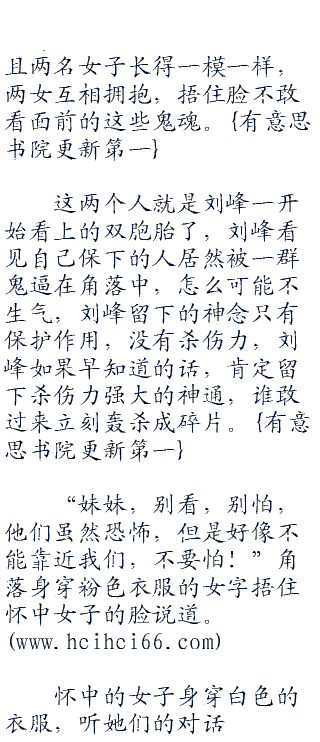 且两名女子长得一模一样，
两女互相拥抱，捂住脸不敢
看面前的这些鬼魂。{有意思
书院更新第一}
这两个人就是刘峰一开
始看上的双胞胎了，刘峰看
见自己保下的人居然被一群
鬼逼在角落中，怎么可能不
生气，刘峰留下的神念只有
保护作用，没有杀伤力，刘
峰如果早知道的话，肯定留
下杀伤力强大的神通，谁敢
过来立刻轰杀成碎片。{有意
思书院更新第一}
“妹妹，别看，别怕，
他们虽然恐怖，但是好像不
能靠近我们，不要怕！”角
落身穿粉色衣服的女字捂住
怀中女子的脸说道。
(www.hcihci66.com)
怀中的女子身穿白色的
衣服，听她们的对话